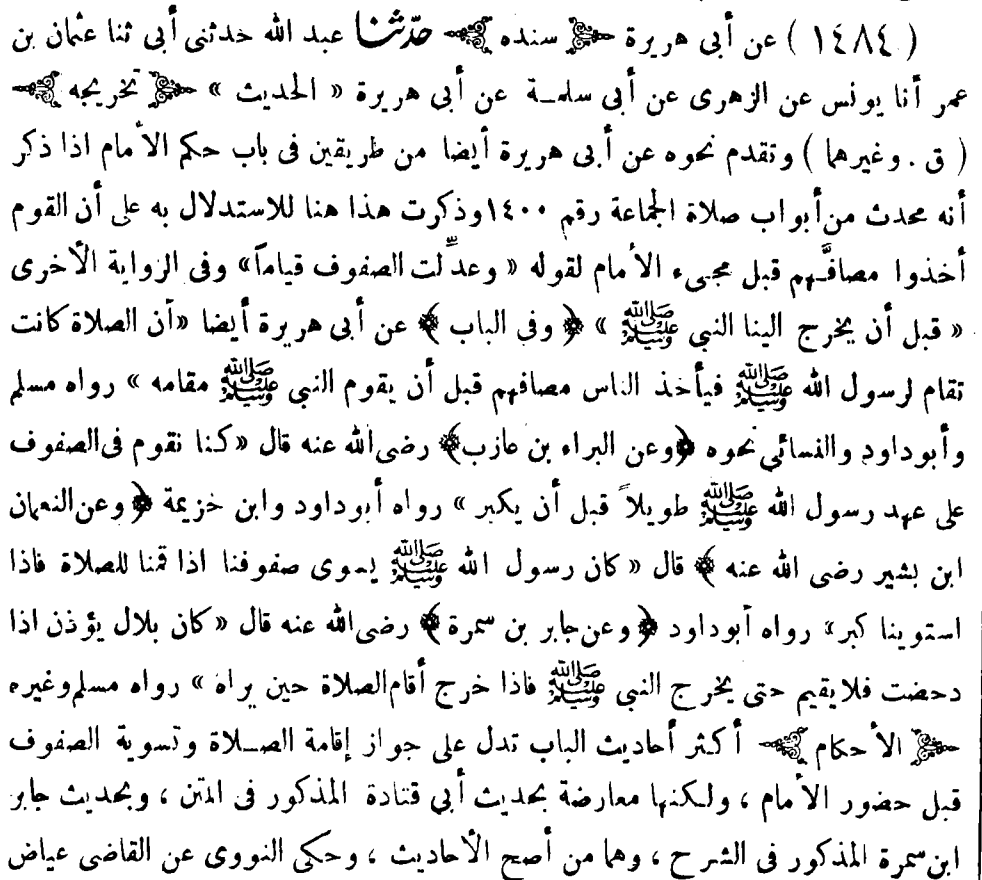 ( ١٤٨٤ ) عن أبى هريرة ﴿ سنده ﴾ حدّثنا عبد الله حدثنى أبى ثنا عثمان بن
عمر أنا يونس عن الزهرى عن أبى سلمـة عن أبى هريرة « الحديث » ﴿ تخريجه ﴾
( ق . وغيرهما ) وتقدم نحوه عن أبى هريرة أيضا من طريقين فى باب حكم الأمام اذا ذكر
أنه محدث من أبواب صلاة الجماعة رقم ١٤٠٠ وذكرت هذا هنا للاستدلال به على أن القوم
أخذوا مصافَّـهم قبل مجىء الأمام لقوله « وعدِّلت الصفوف قياماً» وفى الرواية الأخرى
« قبل أن يخرج الينا النبى ﷺ » ﴿ وفى الباب ﴾ عن أبى هريرة أيضا «أن الصلاة كانت
تقام لرسول الله ﷺ فيأخذ الناس مصافهم قبل أن يقوم النبى ﷺ مقامه » رواه مسلم
وأبو داود والنسائي نحوه ﴿وعن البراء بن عازب﴾ رضى الله عنه قال «كنا نقوم فى الصفوف
على عهد رسول الله ﷺ طويلاً قبل أن يكبر » رواه أبو داود وابن خزيمة ﴿ وعن النعمان
ابن بشير رضى الله عنه ﴾ قال « كان رسول الله ﷺ يسوى صفوفنا اذا قمنا للصلاة فاذا
استوينا كبر» رواه أبو داود ﴿ وعن جابر بن سمرة ﴾ رضى الله عنه قال «كان بلال يؤذن اذا
دحضت فلا يقيم حتى يخرج النبى ﷺ فاذا خرج أقام الصلاة حين يراه » رواه مسلم وغيره
﴿ الأحكام ﴾ أكثر أحاديث الباب تدل على جواز إقامة الصـلاة وتسوية الصفوف
قبل حضور الأمام ، ولكنها معارضة بحديث أبى قتادة المذكور فى المتن ، وبحديث جابر
ابن سمرة المذكور فى الشرح ، وهما من أصح الأحاديث ، وحكى النووى عن القاضى عياض